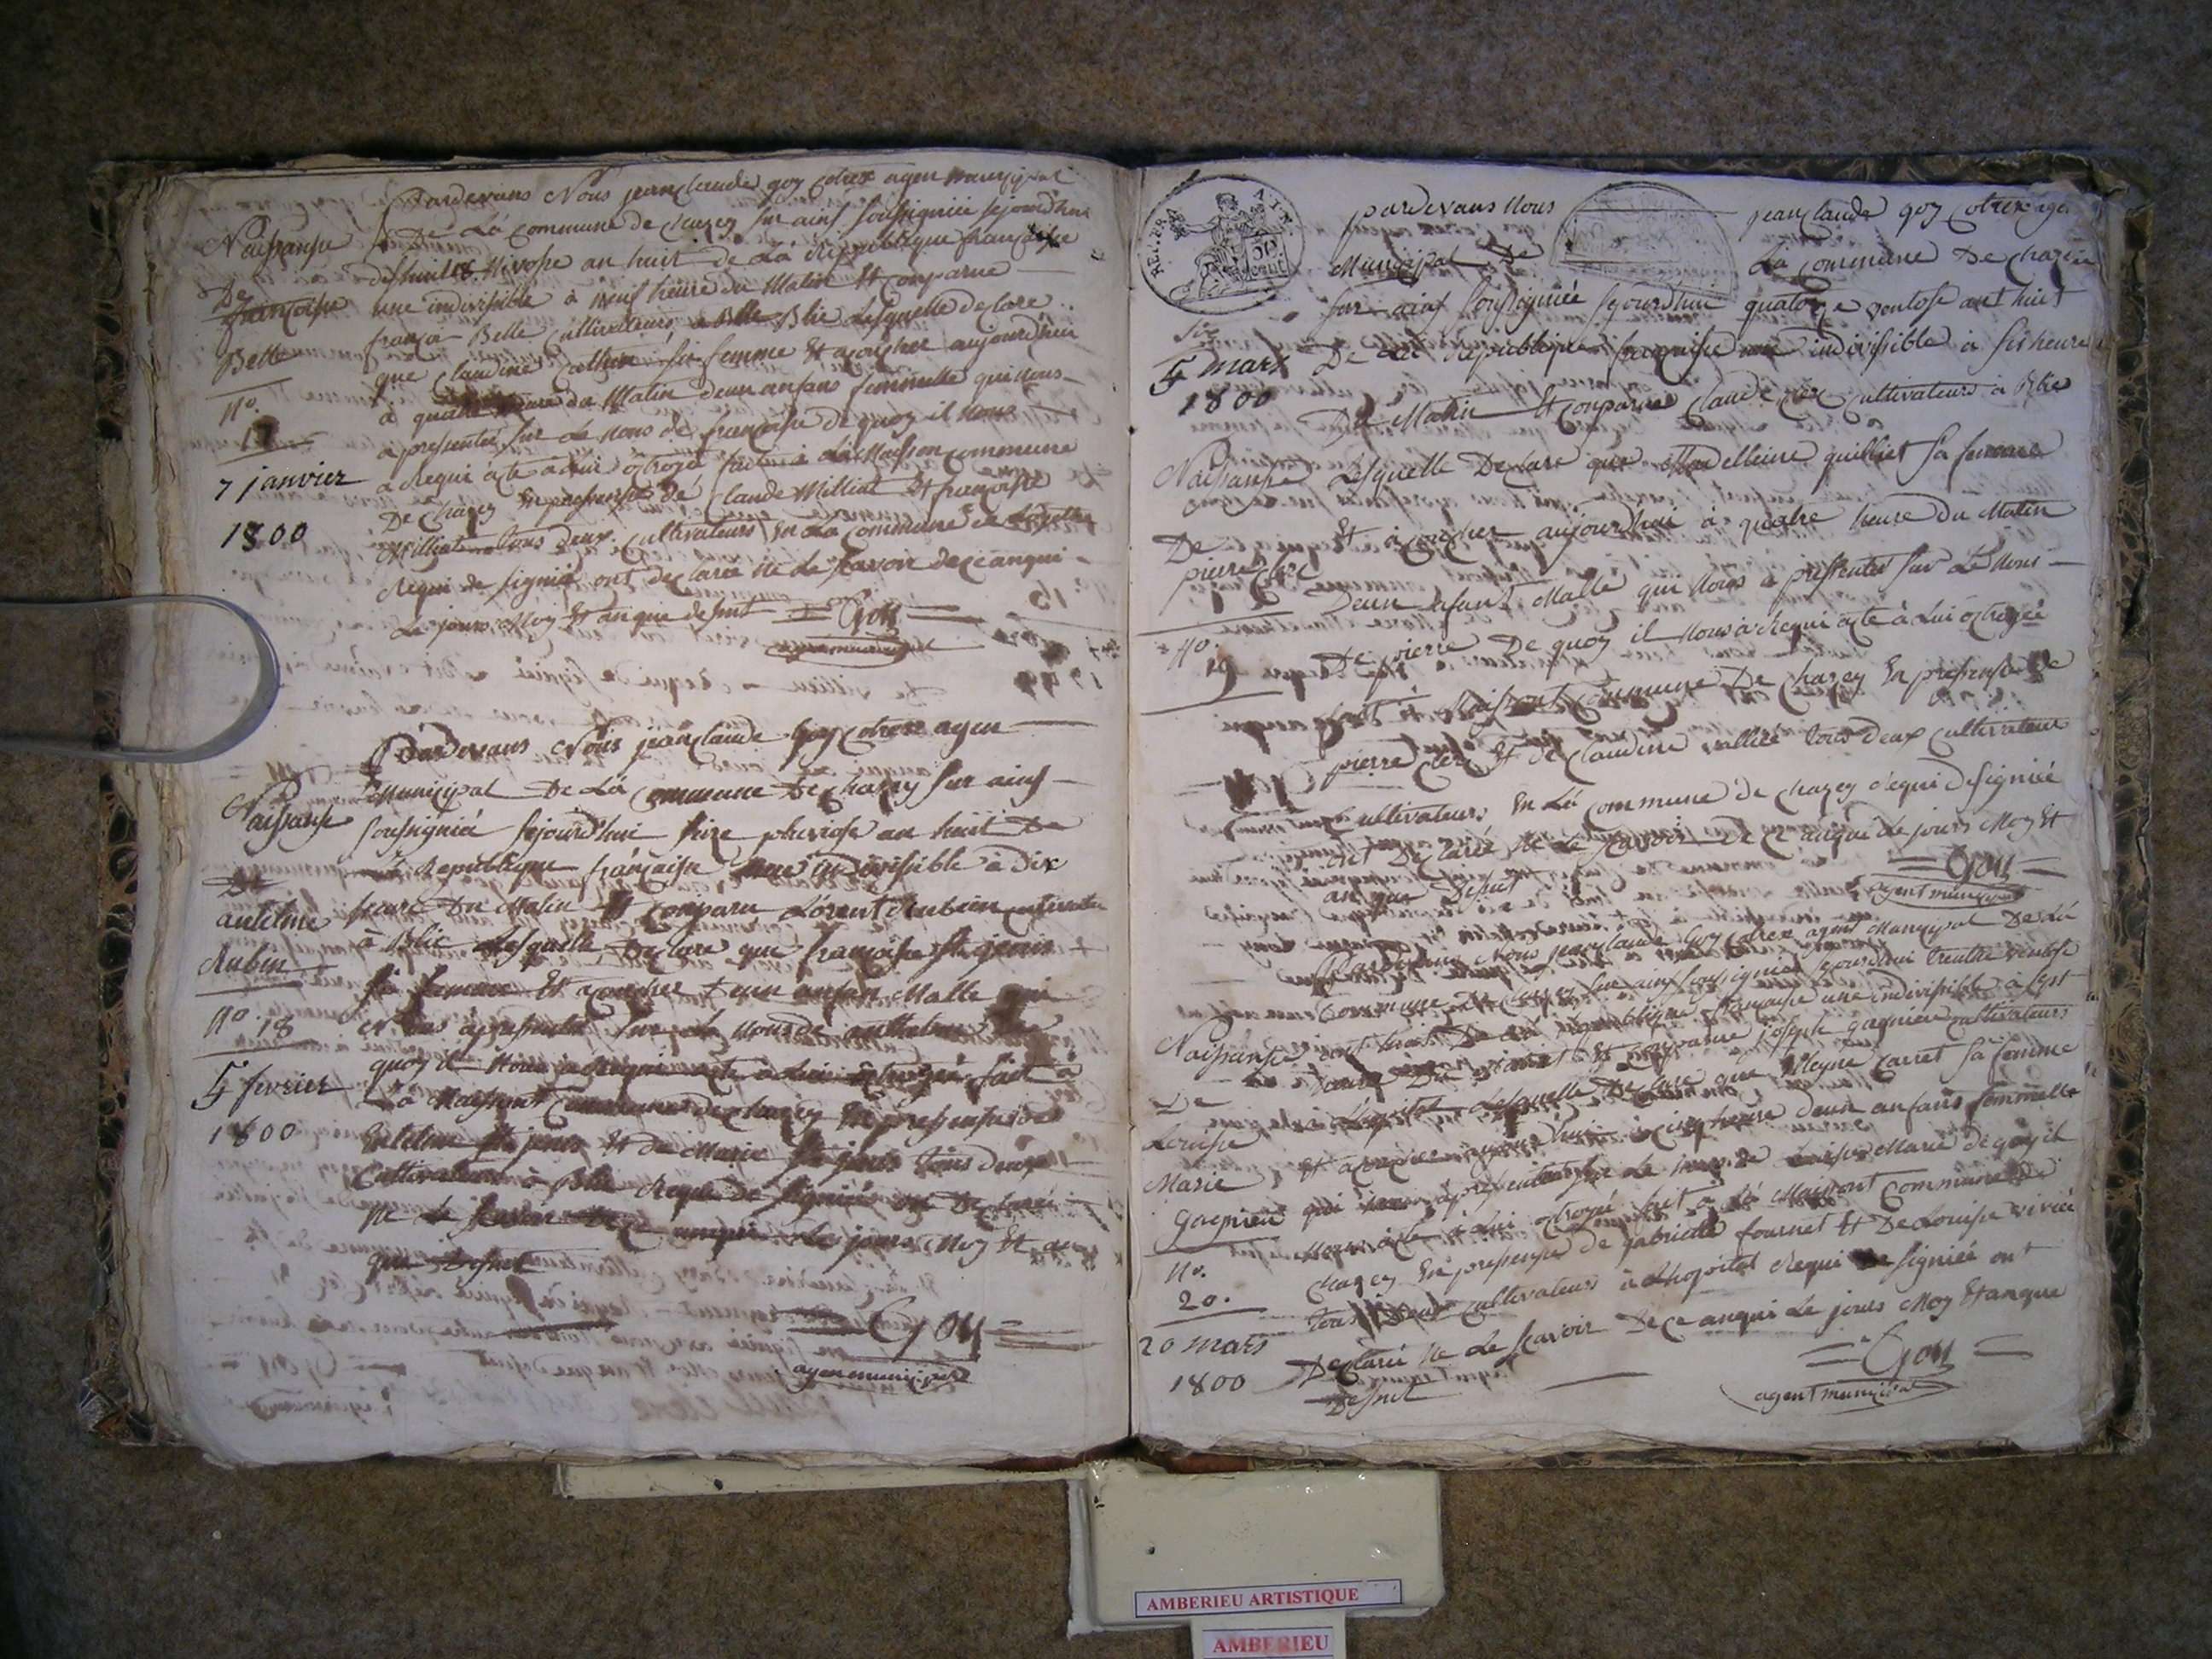 Pardevans Nous jean claude goy cotrex agen municipal
De La commune de chazey sur ains soussigniée sejourdhui
dishuit 18 Nivose an huit de La Republique française
une indivisible à neuf heure du Matin Et conparue
françois Belle cultivateurs à Blie Lesquelle declare
que Claudine sa femme Et acoucher aujourdhui
à quatre heure du Matin deun anfans femmelle qui nous
a pressentée sur Le Nons de françoise de quoy il nous
a Requi acte à Lui octroyée fait à La Maison commune
De chazey En pressense de Claude Milliat Et françoise
Milliat tous deux cultivateurs En La commune de
Requi de signiée ont declarée Ne Le scavoir dece anqui
Le jours Moy Et an que desut = Goy =
agen municipal
Naissanse
De
françoise
Belle
No.
17
7 janvier
1800
Pardevans Nous jean claude Goy cotrex agen
Municipal De La Commune De chazey sur ains
soussigniée sejourdhui seize pluviose an huit De
La Republique française une indivisible à Dix
heure Du Matin Et conparu Lorent Aubin cultivateur
à Blie Lesquelle Declare que françoise St genis
sa femme Et acoucher Deun anfan Malle qui
Nous à pressentée sur Le Nons de anthelme De
quoy il Nous à Requi acte à Lui octroyée fait à
La Maisont Commune de chazey En pressense de
Enthelme St genis Et de Marie St genis tous deux
Cultivateurs à Blie Requi De signiée ont Declarée
Ne Le scavoir Dece anqui Le jours Moy Et an
que Desut
= Goy =
agen municipal
Naissanse
De
antelme
Aubin
No. 18
5 fevrier
1800
pardevans Nous jean claude goy cotrex agen
Municipal De La commune De chazey
sur ains soussigniée sejourdhui quatorze ventose ant huit
De La Republique française une indivisible à sis heure
Du Matin Et conparue Claude clerc cultivateurs à Blie
Lesquelle Declare que Madelleine quilliet sa femme
Et à coucher aujourdhui à quatre heure du Matin
Deun anfant Malle qui Nous à pressenter sur Le Nons
De pierre De quoy il Nous à Requi acte à Lui octroyée
fait à Maisont Commune De chazey En pressense de
pierre clerc Et de Claudine vallire tous deux cultivateur
Cultivateurs En La Commune de chazey Requi De signiée
ont Declarée Ne Le scavoir De ce anqui Le jours Moy Et
an que Desut
= Goy =
agent municipal
RELIER
AIN
50 cent
5 mars
1800
Naissanse
De
pierre clerc
No.
19
Pardevans Nous jean claude Goy cotrex agent Municipal De La
Commune De chazey sur ains soussigniée sejourdhui trentre ventose
ant huit De La Republique française une indivisible à sept
heure Du Matin Et conparue joseph gagnieu cultivateurs
à Lhopital Lesquelle Declare que Carret sa femme
Et acoucher aujourdhui à cinq heure deun anfans femmelle
qui Nous à pressenter sur Le Nons De Louise Marie de quoy il
Nous acte à Lui octroyée fait à La Maisont Commune De
chazey En pressense de gabrielle fournet Et De Louise virieé
tous Deux Cultivateurs à Lhopital Requi De signiée ont
Declarée Ne Le scavoir De ce anqui Le jours Moy Et an que
Desut
= Goy =
agent municipal
Naissanse
De
Louise
Marie
gagnieu
No.
20.
20 mars
1800
AMBERIEU ARTISTIQUE
AMBERIEU